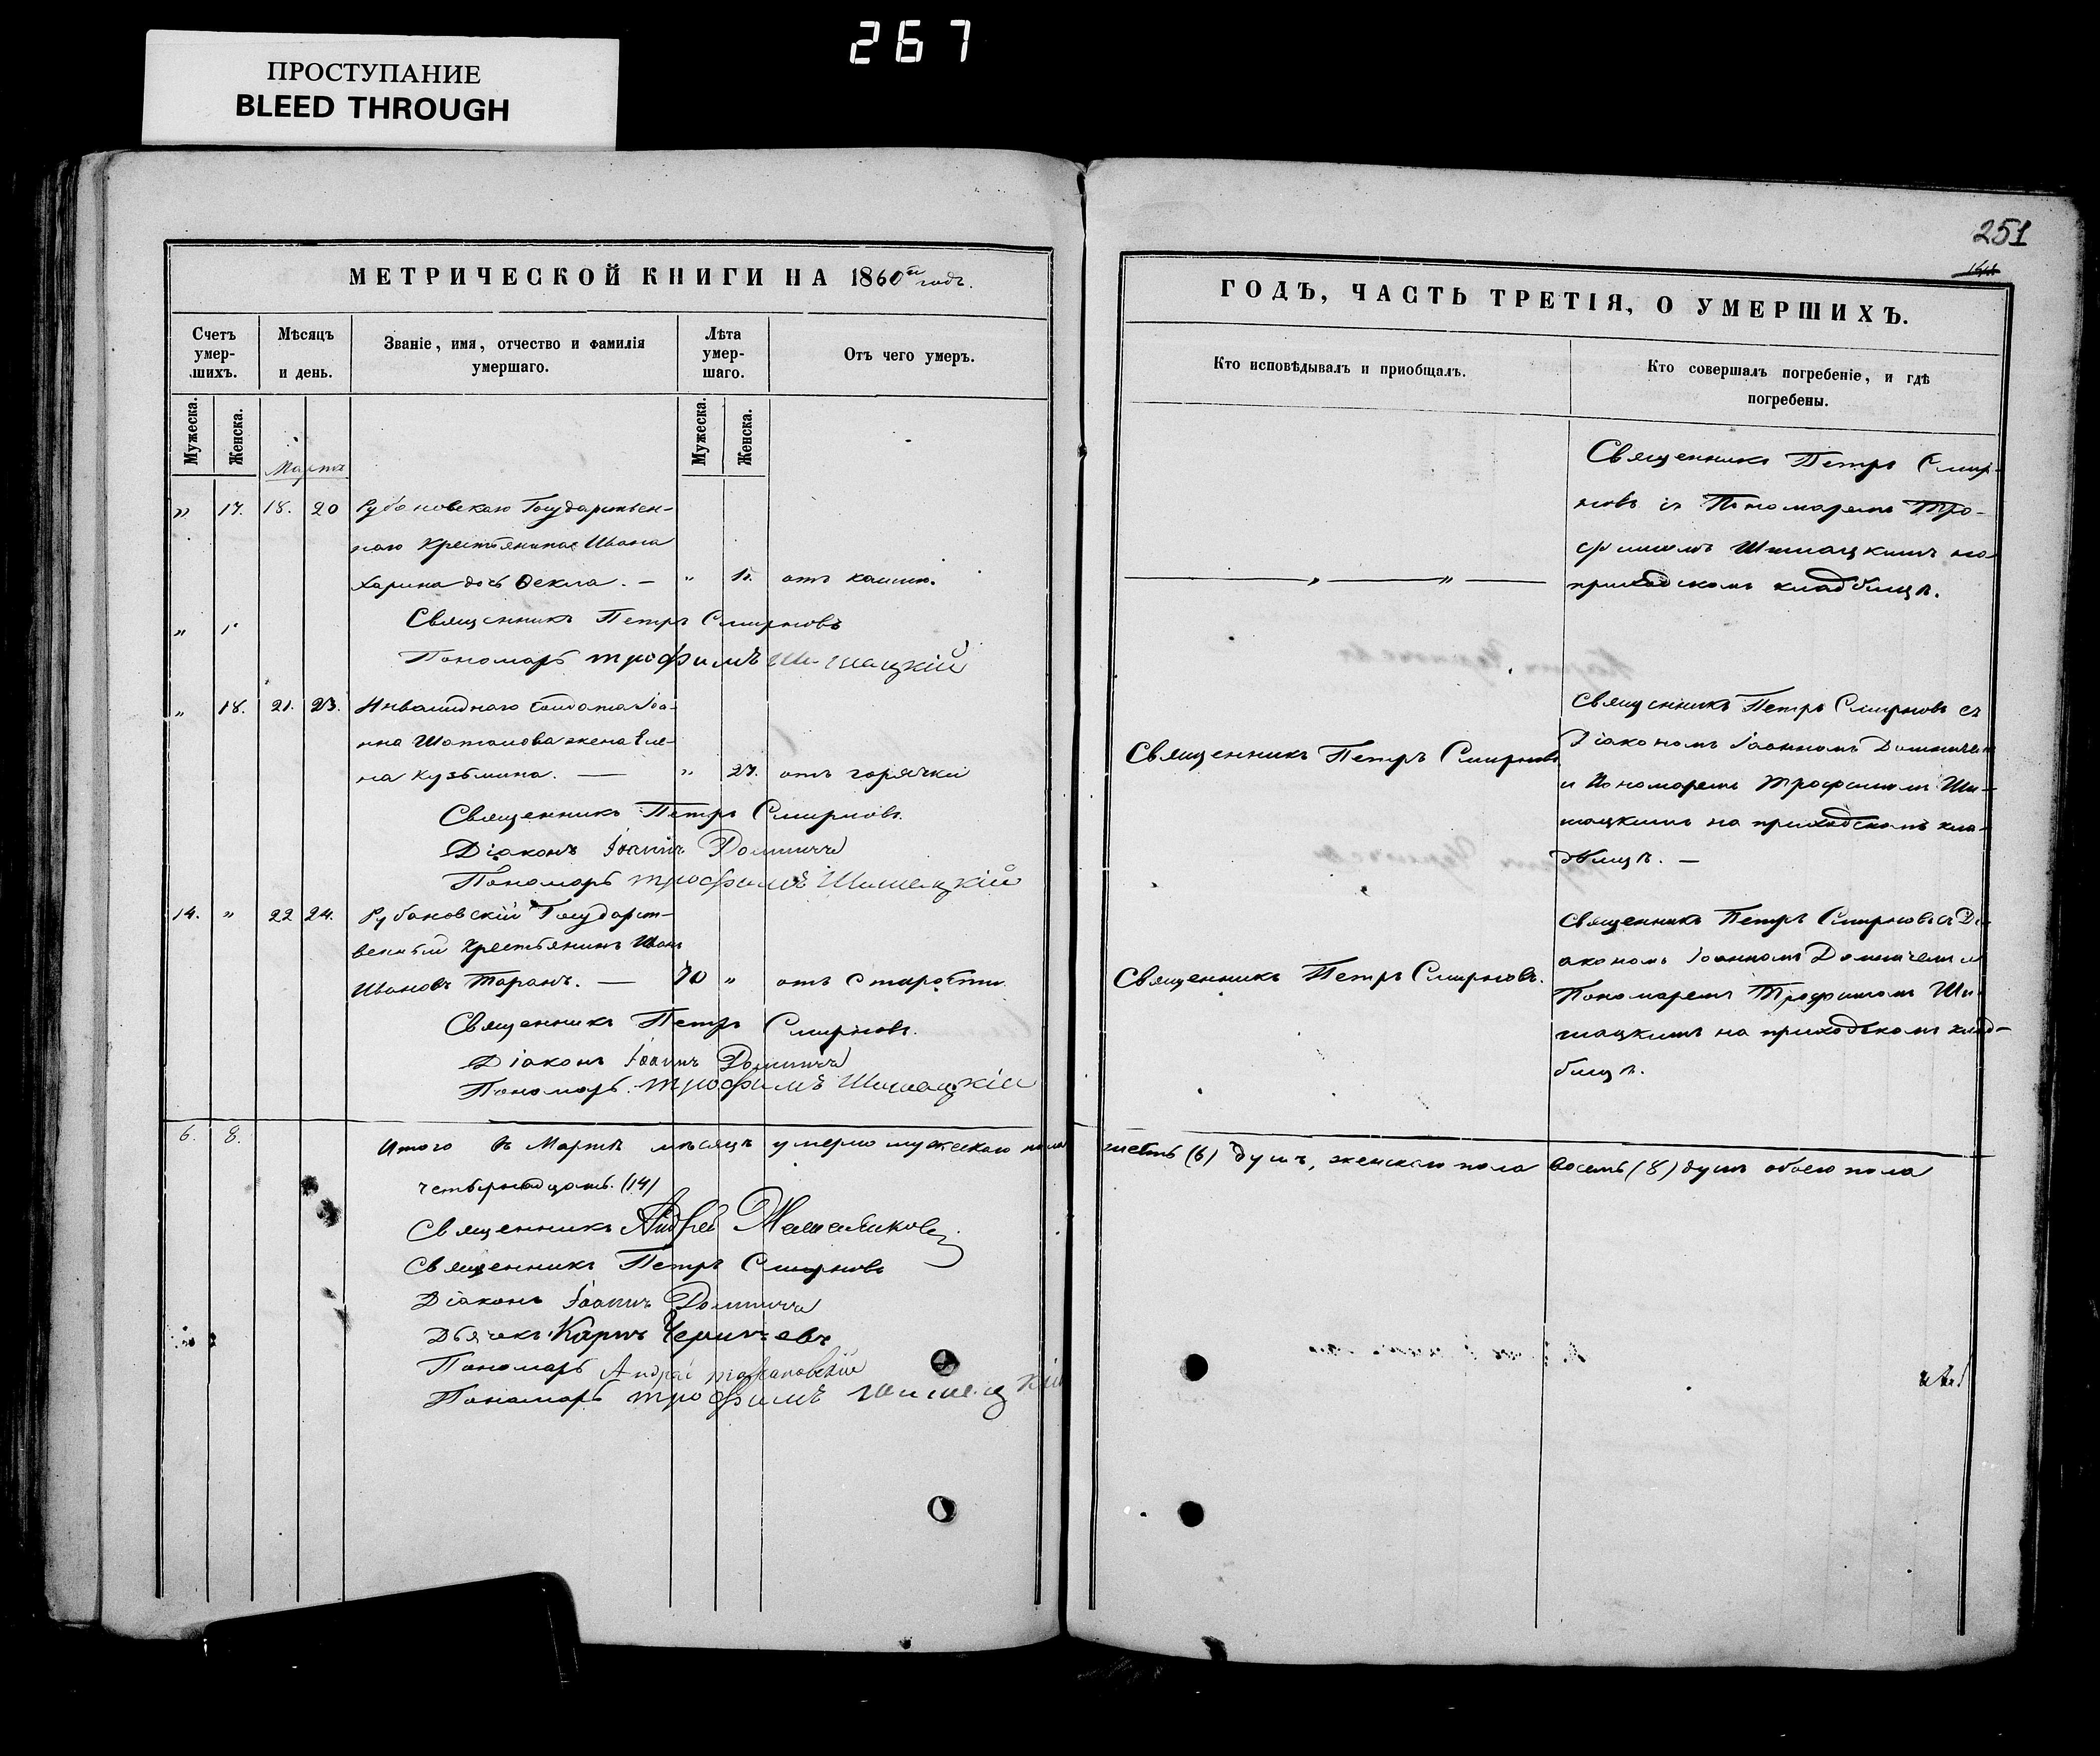 267
ПРОСТУПАНИЕ
BLEED THROUGH
251
МЕТРИЧЕСКОЙ КНИГИ НА 1860й годъ.
Счетъ умер-шихъ.
Мѣсяцъ и день.
Званіе, имя, отчество и фамилія умершаго.
Лѣта умер-шаго.
Отъ чего умеръ.
Мужеска.
Женска.
Мужеска.
Женска.
Марта
" 17. 18. 20 Рубановскаго Государствен-
наго Крестьянина Ивана
Харина дочь Ѳекла. — " отъ кашлю.
Священникъ Петръ Смирновъ
Пономарь Трофимъ Шишацкій
" 18. 21. 23. Инвалиднаго Солдата Іоа-
нна Шаталова жена Еле-
на Кузьмина. — " 27. отъ горячки
Священникъ Петръ Смирновъ.
Діаконъ Іоаннъ
Пономарь Трофимъ Шишацкій
14. " 22 24. Рубановскій Государст-
венный Крестьянинъ Иванъ
Ивановъ Таранъ. — 70 " отъ старости.
Священникъ Петръ Смирновъ.
Діаконъ Іоаннъ
Пономарь Трофимъ Шишацкій
6. 8. Итого въ Мартѣ мѣсяцѣ умерло мужескаго пола
четырнадцать. (14)
Священникъ Андрей
Священникъ Петръ Смирновъ
Діаконъ Іоаннъ
Дьячекъ Карпъ
Пономарь Андрей
Пономарь Трофимъ Шишацкій
ГОДЪ, ЧАСТЬ ТРЕТІЯ, О УМЕРШИХЪ.
Кто исповѣдывалъ и приобщалъ.
Кто совершалъ погребеніе, и гдѣ погребены.
Священникъ Петръ Смир-
новъ съ Пономаремъ Тро-
фимомъ Шишацкимъ на
приходскомъ кладбищѣ.
Священникъ Петръ Смирновъ
Священникъ Петръ Смирновъ съ
Діакономъ Іоанномъ
и Пономаремъ Трофимомъ Ши-
шацкимъ на приходскомъ кла-
дбищѣ. —
Священникъ Петръ Смирновъ.
Священникъ Петръ Смирновъ съ Ді-
акономъ Іоанномъ и
Пономаремъ Трофимомъ Ши-
шацкимъ на приходскомъ клад-
бищѣ.
шесть (6) душъ, женскаго пола восемь (8) душъ обоего пола